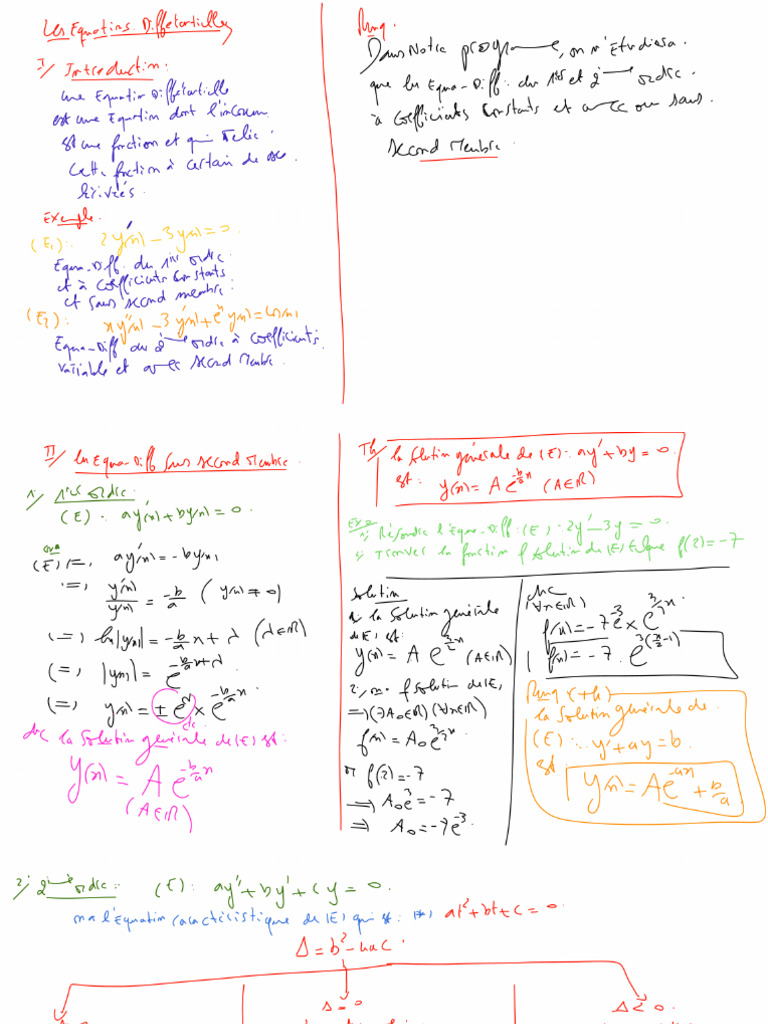 Les Equations Différentielles
I/ Introduction:
une Equation Différentielle
est une Equation dont l'inconnu
est une fonction et qui relie
cette fonction à certain de ses
dérivées.
Exemple.
(E₁): 2y'(x) - 3y(x) = 0.
Equa-Diff. du 1ier ordre
et à coefficients constants
et sans second membre.
(E₂): xy''(x) - 3y'(x) + eˣy(x) = cos x,
Equa-Diff du 2ième ordre à coefficients
variable et avec second membre.
Rmq.
Dans notre programme, on n'étudiera
que les Equa-Diff. du 1ier et 2ième ordre
à coefficients constants et avec ou sans
second membre.
II/ les Equa-Diff sans second membre
1/ 1ier ordre
(E): ay'(x) + by(x) = 0.
(E) ⇔ ay'(x) = -by(x)
⇔ y'(x)/y(x) = -b/a (y(x) ≠ 0)
⇔ ln|y(x)| = -b/a x + λ (λ∈ℝ)
⇔ |y(x)| = e^(-b/a x + λ)
⇔ y(x) = ± e^λ × e^(-b/a x)
donc la solution générale de (E) est:
y(x) = A e^(-b/a x)
(A∈ℝ)
Th/ la solution générale de (E): ay' + by = 0.
est: y(x) = A e^(-b/a x) (A∈ℝ)
1/ Résoudre l'équa-Diff: (E): 2y' - 3y = 0.
2/ Trouver la fonction f solution de (E) telque f(2) = -7
Solution
1/ la solution générale
de (E) est:
y(x) = A e^(3/2 x) (A∈ℝ)
2/ f solution de (E)
⇒ (∃A₀∈ℝ)(∀x∈ℝ)
f(x) = A₀e^(3/2 x)
or f(2) = -7
⇒ A₀e³ = -7
⇒ A₀ = -7e⁻³
donc
(∀x∈ℝ)
f(x) = -7e⁻³ × e^(3/2 x)
f(x) = -7. e^(3(x/2 - 1))
Rmq (th)
la solution générale de
(E): y' + ay = b.
est y(x) = Ae^(-ax) + b/a
2/ 2ième ordre: (E): ay'' + by' + cy = 0.
on a l'équation caractéristique de (E) qui est: (*) at² + bt + c = 0
Δ = b² - 4ac.
Δ = 0
Δ < 0.